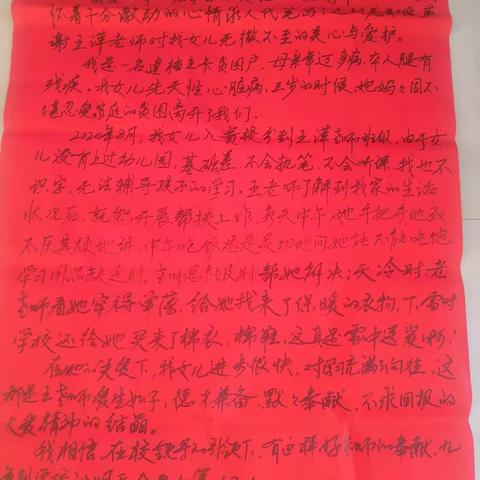 怀着十分激动的心情求人代笔写了这封感谢信,感
谢王萍老师对我女儿无微不至的关心与爱护。
我是一名建档立卡贫困户,母亲年迈多病,本人腿有
残疾。我女儿先天性心脏病,三岁的时候,她妈妈因不
堪忍受家庭的贫困离开了我们。
2020年8月,我女儿入营授书到王萍老师班级,由于女
儿没有上过幼儿园,基础差,不会执笔,不会听课,我也不
识字,无法辅导孩子的学习,王老师了解到我家的生活
状况后,就开展帮扶工作,每天中午,她手把手地教
不厌其烦地讲,中午吃饭总是关切地问她能不能吃饱
学习用品缺乏时,老师总能及时帮她解决;天冷时,老
老师看她穿得单薄,给她找来了保暖的衣物,下雪时
学校还给她买来了棉衣,棉鞋,这真是雪中送炭啊!
在她的关爱下,我女儿进步很快,对学习充满了向往,这
都是王老师爱生如子,德才兼备,默默奉献,不求回报的
大爱精神的结晶。
我相信,在校领导的引领下,有这样好老师的奉献,九